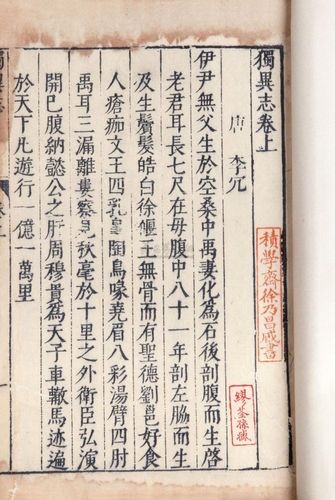 獨異志卷上
唐 李冗
伊尹無父生於空桑中禹妻化為石後剖腹而生啓
老君耳長七尺在母腹中八十一年剖左脇而生
及生鬢髮皓白徐偃王無骨而有聖德劉邕好食
人瘡痂文王四乳皇闓鳥喙堯眉八彩湯臂四肘
禹耳三漏離婁察秋毫於十里之外衛臣弘演
開已腹納懿公之肝周穆貴為天子車轍馬迹遍
於天下凡遊行一億一萬里
積學齋徐乃昌臧書
繆荃孫藏